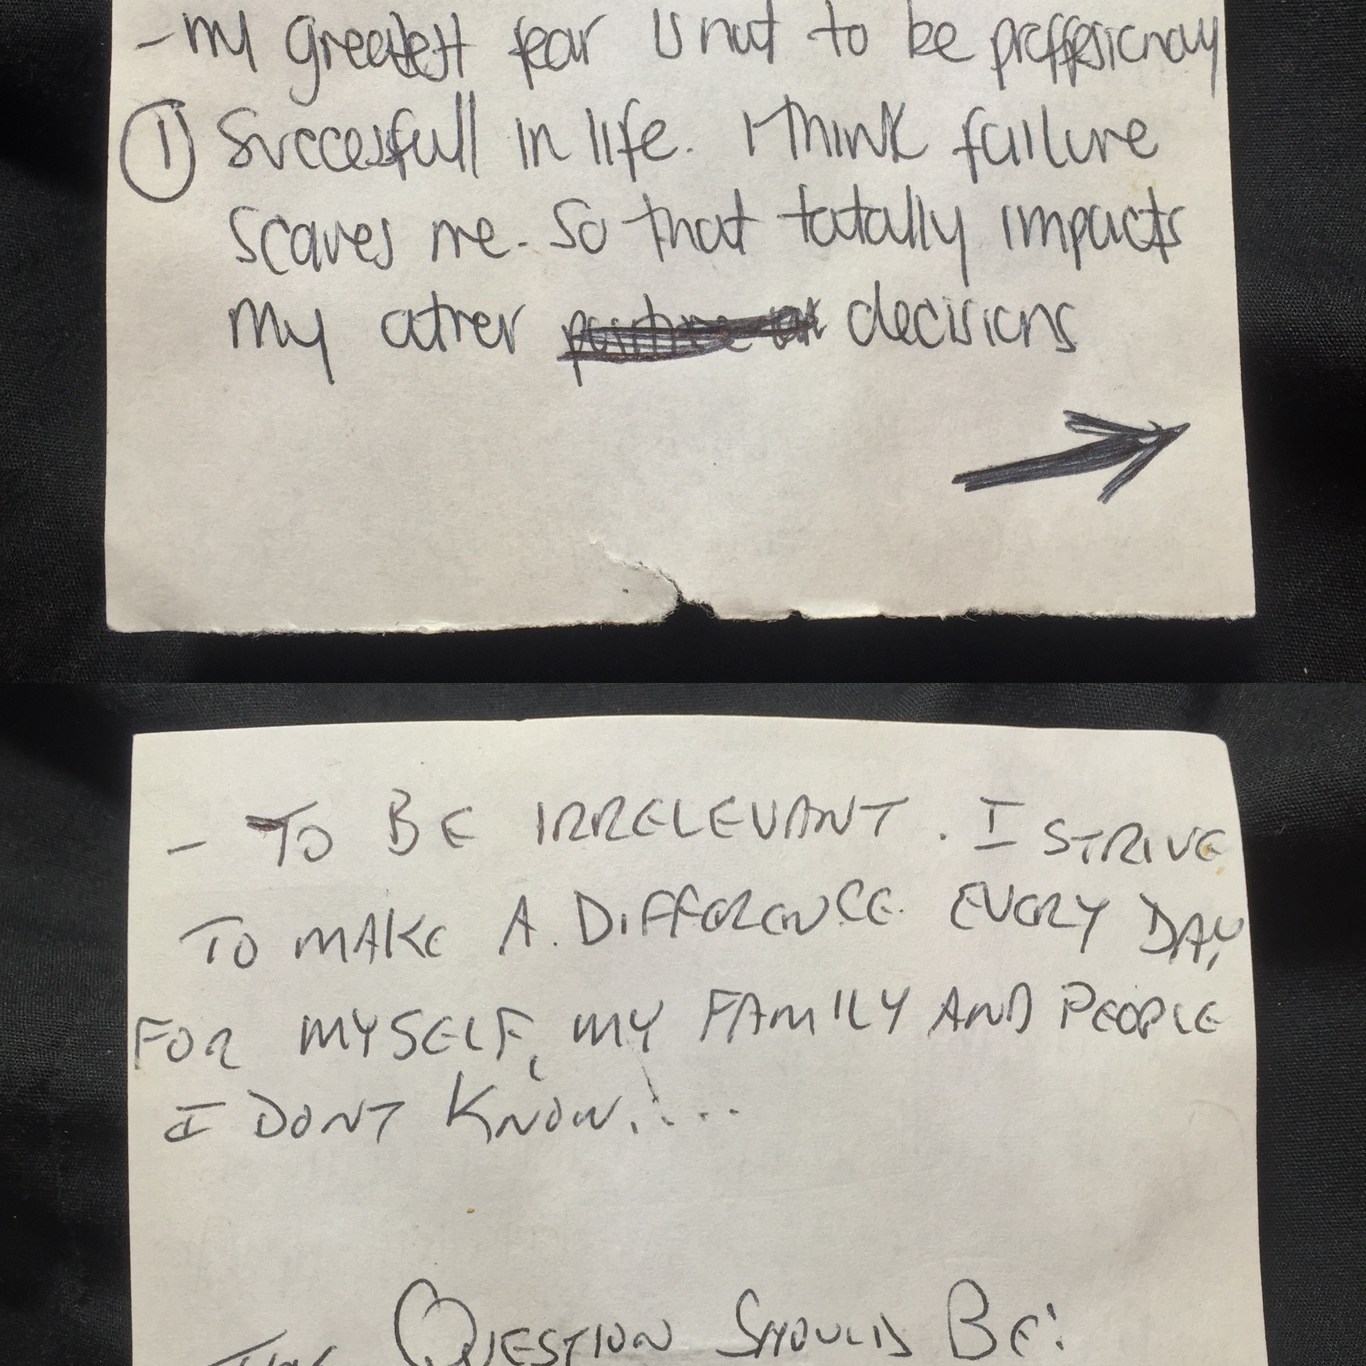 - My greatest fear is not to be proffesionaly
① Succesfull in life. I think failure
scares me. So that totally impacts
my other decisions
- TO BE IRRELEVANT. I STRIVE
TO MAKE A DIFFERENCE EVERY DAY,
FOR MYSELF, MY FAMILY AND PEOPLE
I DONT KNOW....
THE QUESTION SHOULD BE: